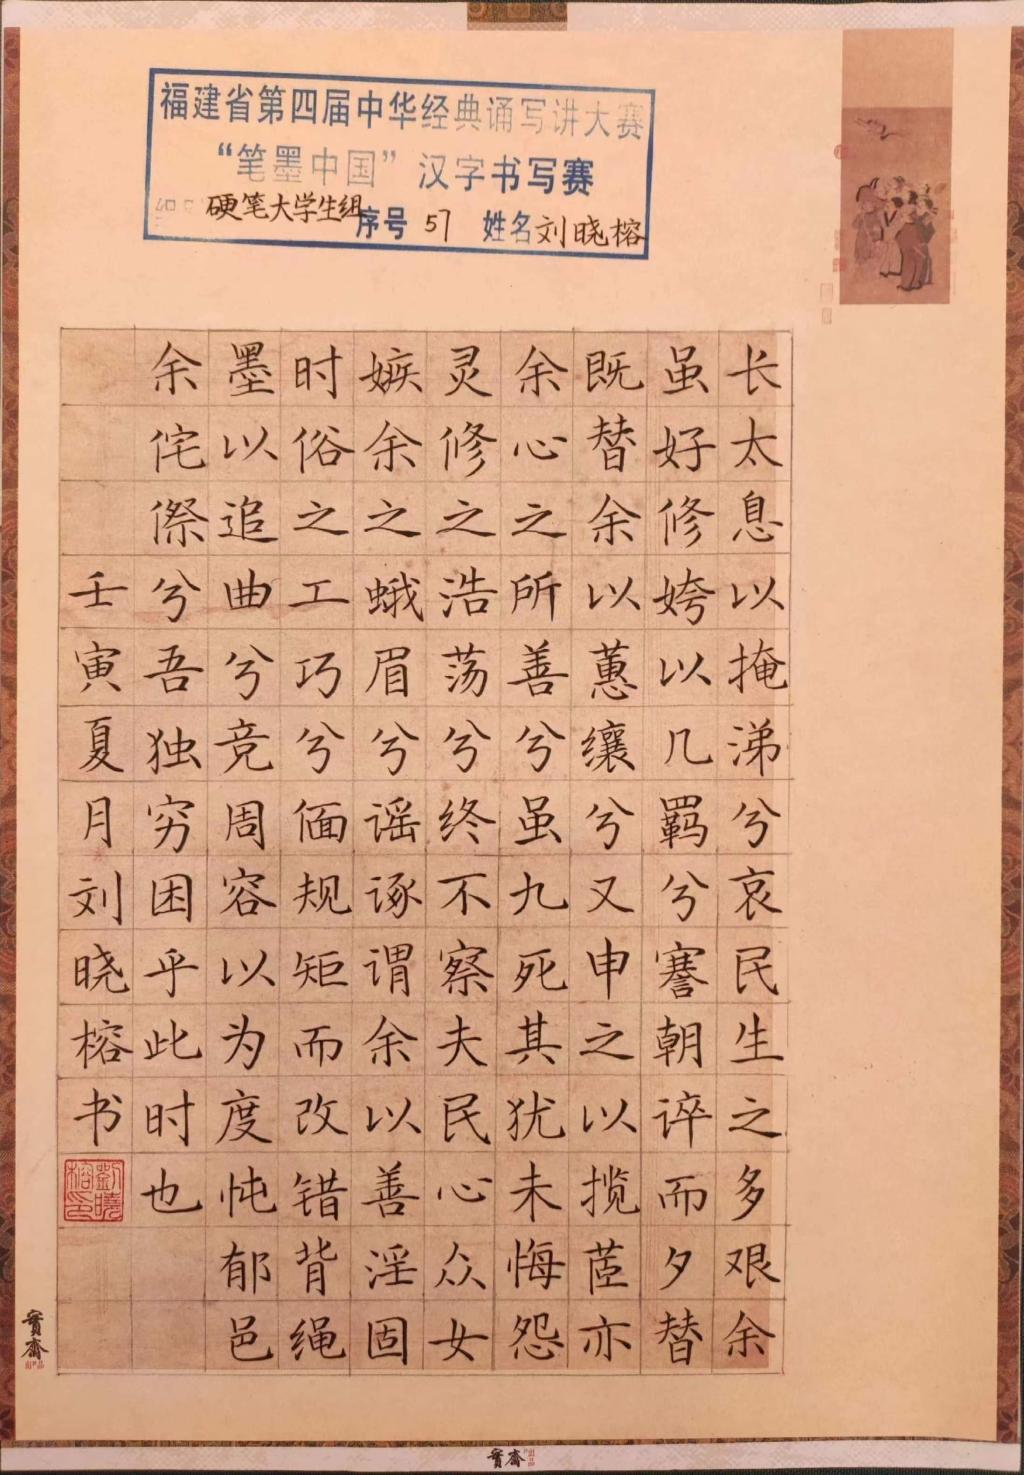 福建省第四届中华经典诵写讲大赛
“笔墨中国”汉字书写赛
硬笔大学生组 序号 57 姓名 刘晓榕
长太息以掩涕兮哀民生之多艰余
虽好修姱以几羁兮謇朝谇而夕替
既替余以蕙纕兮又申之以揽茝亦
余心之所善兮虽九死其犹未悔怨
灵修之浩荡兮终不察夫民心众女
嫉余之蛾眉兮谣诼谓余以善淫固
时俗之工巧兮偭规矩而改错背绳
墨以追曲兮竞周容以为度忳郁邑
余侘傺兮吾独穷困乎此时也
壬寅夏月刘晓榕书
劉曉榕印
寳齋
寳齋